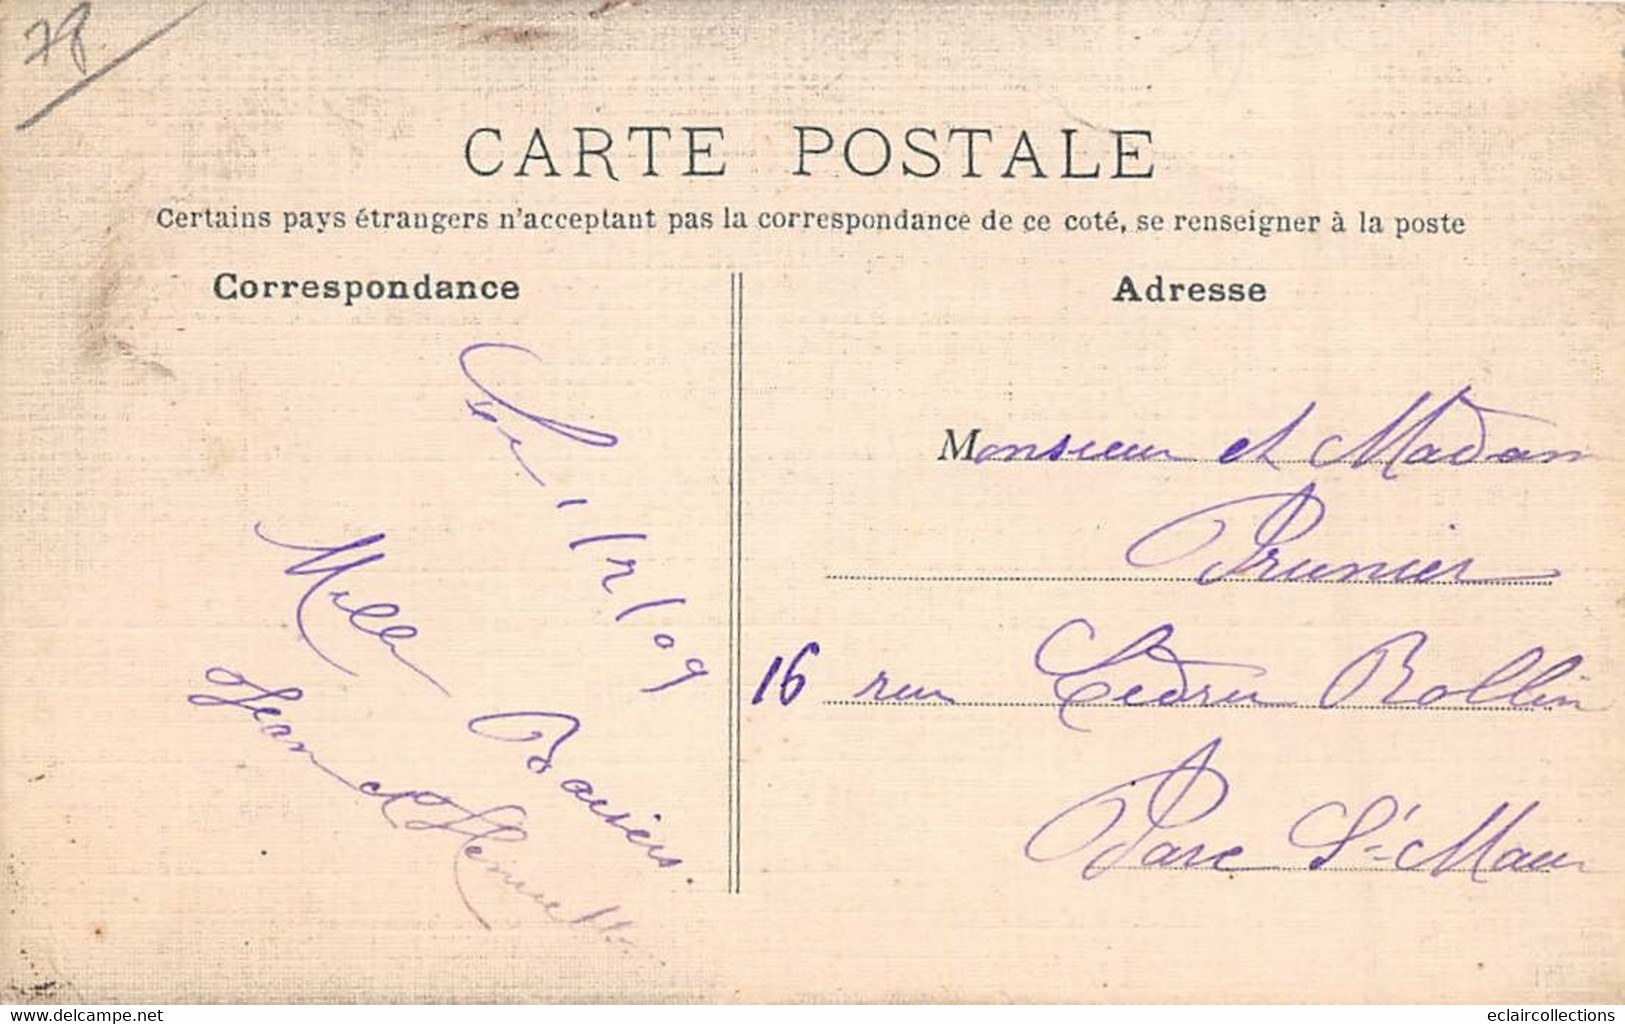 78
CARTE POSTALE
Certains pays étrangers n'acceptant pas la correspondance de ce coté, se renseigner à la poste
Correspondance
Le 1/2/09
Mille Baisers.
Jean et
Adresse
Monsieur et Madam
Prunier
16 rue Ledru Rollin
Parc St-Maur
www.delcampe.net
eclaircollections